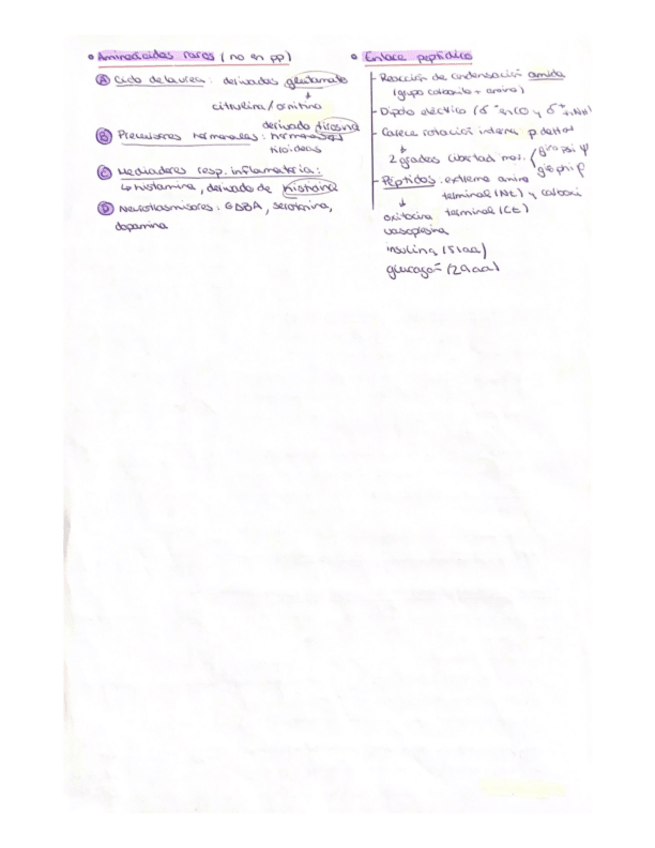 • Aminoácidos raros (no en pp)
Ⓐ Ciclo de la urea: derivados glutamato
↓
citrulina/ornitina
derivado tirosina
Ⓑ Precursores hormonales: hormonas
tiroideas
Ⓒ Mediadores resp. inflamatoria:
↳ histamina, derivado de histidina
Ⓓ Neurotrasmisores: GABA, serotonina,
dopamina
• Enlace peptídico
- Reacción de condensación amida
(grupo carboxilo + amino)
- Dipolo eléctrico (δ⁻ en CO y δ⁺ en NH)
- Carece rotación interna
↓
2 grados libertad mov. / giro psi ψ
giro phi φ
- Péptidos: extremo amino
terminal (Nt) y carboxi
terminal (Ct)
↓
oxitocina
vasopresina
insulina (51aa)
glucagón (29aa)